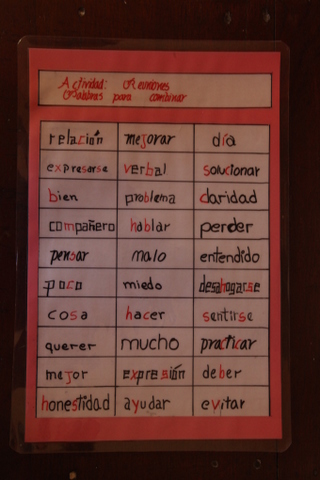 Actividad: Reuniones
Palabras para combinar
relación mejorar día
expresarse verbal solucionar
bien problema claridad
compañero hablar perder
pensar malo entendido
poco miedo desahogarse
cosa hacer sentirse
querer mucho practicar
mejor expresión deber
honestidad ayudar evitar